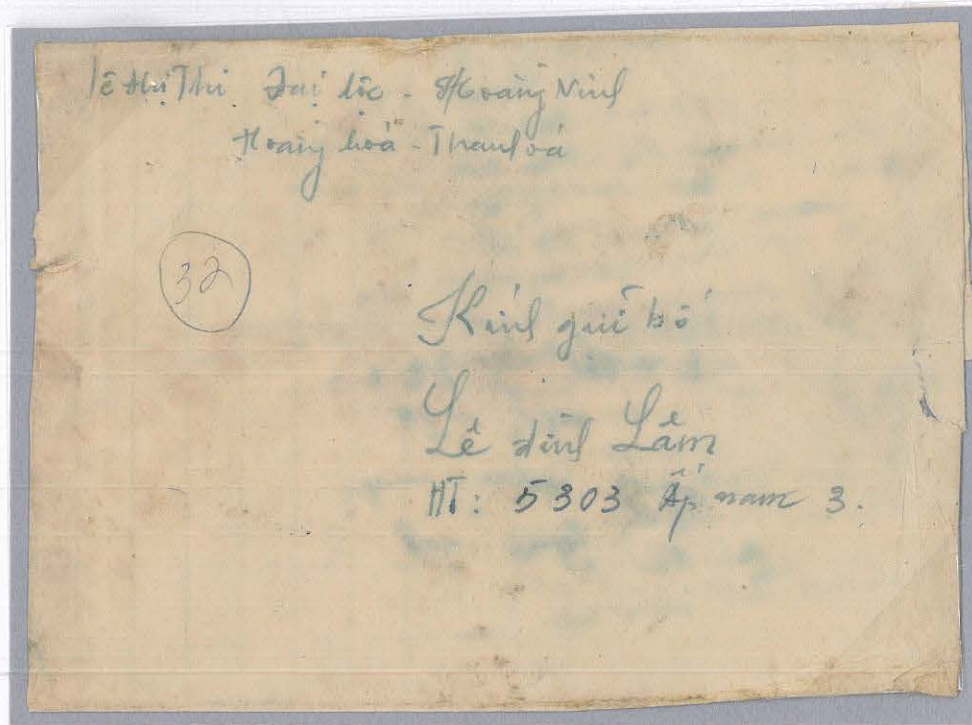 Lê thị Thi Đại lộc - Hoằng Ninh
Hoằng hoá - Thanh oá
32
Kính gửi bố
Lê đình Lâm
HT: 5303 Ấp nam 3.